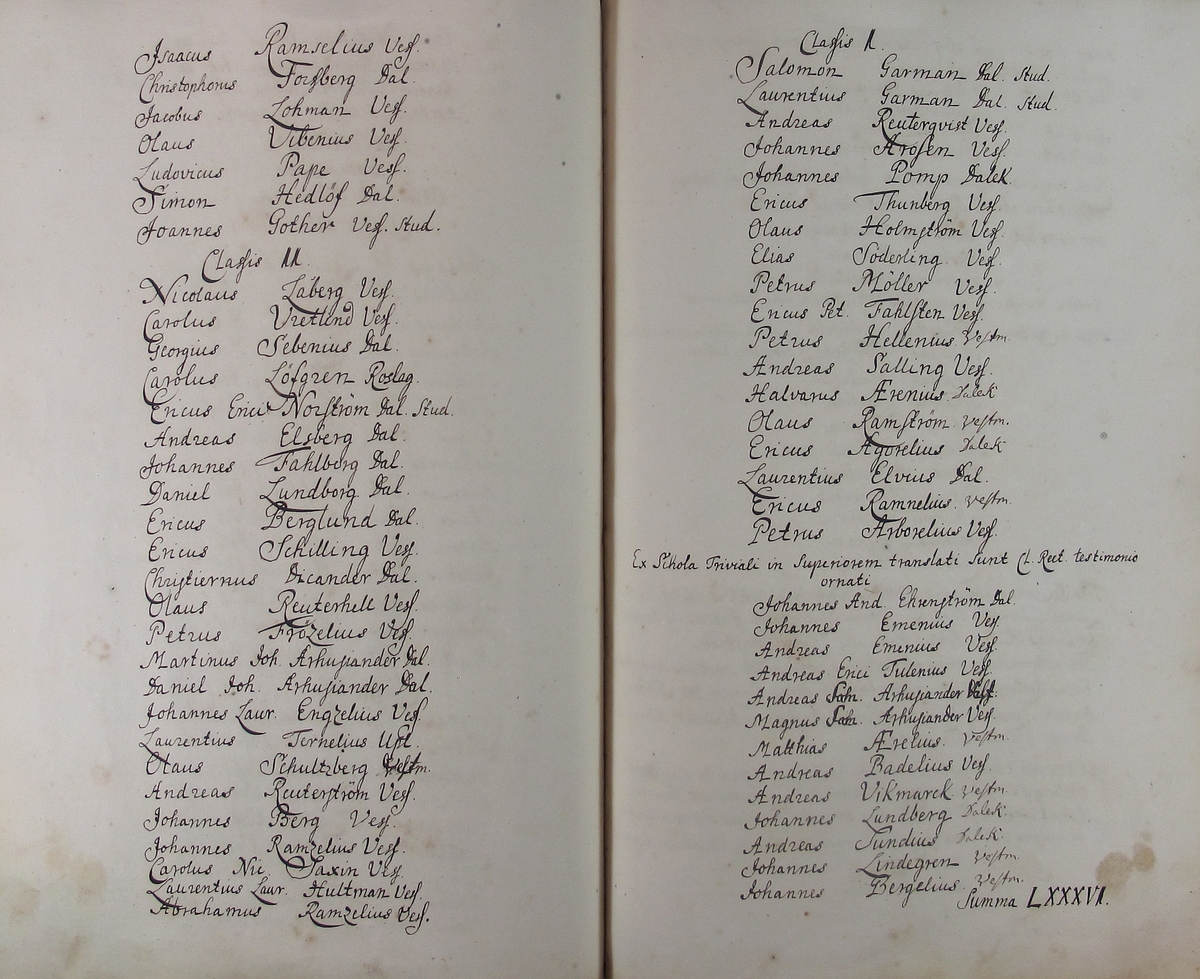 Isaacus Ramselius Vesf.
Christophorus Forsberg Dal.
Jacobus Lohman Vesf.
Olaus Vibenius Vesf.
Ludovicus Pape Vesf.
Simon Hedlöf Dal.
Joannes Gother Vesf. Stud.
Classis II.
Nicolaus Låberg Vesf.
Carolus Vretlind Vesf.
Georgius Sebenius Dal.
Carolus Löfgren Roslag.
Ericus Erici Norström Dal. Stud.
Andreas Elsberg Dal.
Johannes Fahlberg Dal.
Daniel Lundborg Dal.
Ericus Berglund Dal.
Ericus Schilling Vesf.
Christiernus Dicander Dal.
Olaus Reuterhell Vesf.
Petrus Frözelius Vesf.
Martinus Joh. Arhusiander Dal.
Daniel Joh. Arhusiander Dal.
Johannes Laur. Engzelius Vesf.
Laurentius Ternelius Upl.
Olaus Schultzberg Vestm.
Andreas Reuterström Vesf.
Johannes Berg Vesf.
Johannes Ramzelius Vesf.
Carolus Nic. Saxin Vesf.
Laurentius Laur. Hultman Vesf.
Abrahamus Ramzelius Vesf.
Classis I.
Salomon Garman Dal. Stud.
Laurentius Garman Dal. Stud.
Andreas Reuterqvist Vesf.
Johannes Arosen Vesf.
Johannes Pomp Dalek.
Ericus Thunberg Vesf.
Olaus Holmström Vesf.
Elias Söderling Vesf.
Petrus Möller Vesf.
Ericus Pet. Fahlsten Vesf.
Petrus Hellenius Vestm.
Andreas Salling Vesf.
Halvarus Ærenius Dalek
Olaus Ramström Vestm.
Ericus Agorelius Dalek
Laurentius Elvius Dal.
Ericus Ramnelius Vestm.
Petrus Arborelius Vesf.
Ex Schola Triviali in Superiorem translati sunt Cl. Rect. testimonio
ornati
Johannes And. Ehrenström Dal.
Johannes Emenius Vesf.
Andreas Emenius Vesf.
Andreas Erici Tulenius Vesf.
Andreas Arhusiander Vesf.
Magnus Arhusiander Vesf.
Matthias Ærelius Vestm.
Andreas Badelius Vesf.
Andreas Vikmarck Vestm.
Johannes Lundberg Dalek.
Andreas Sundius Dalek
Johannes Lindegren Vestm.
Johannes Bergelius Vestm.
Summa LXXXVI.